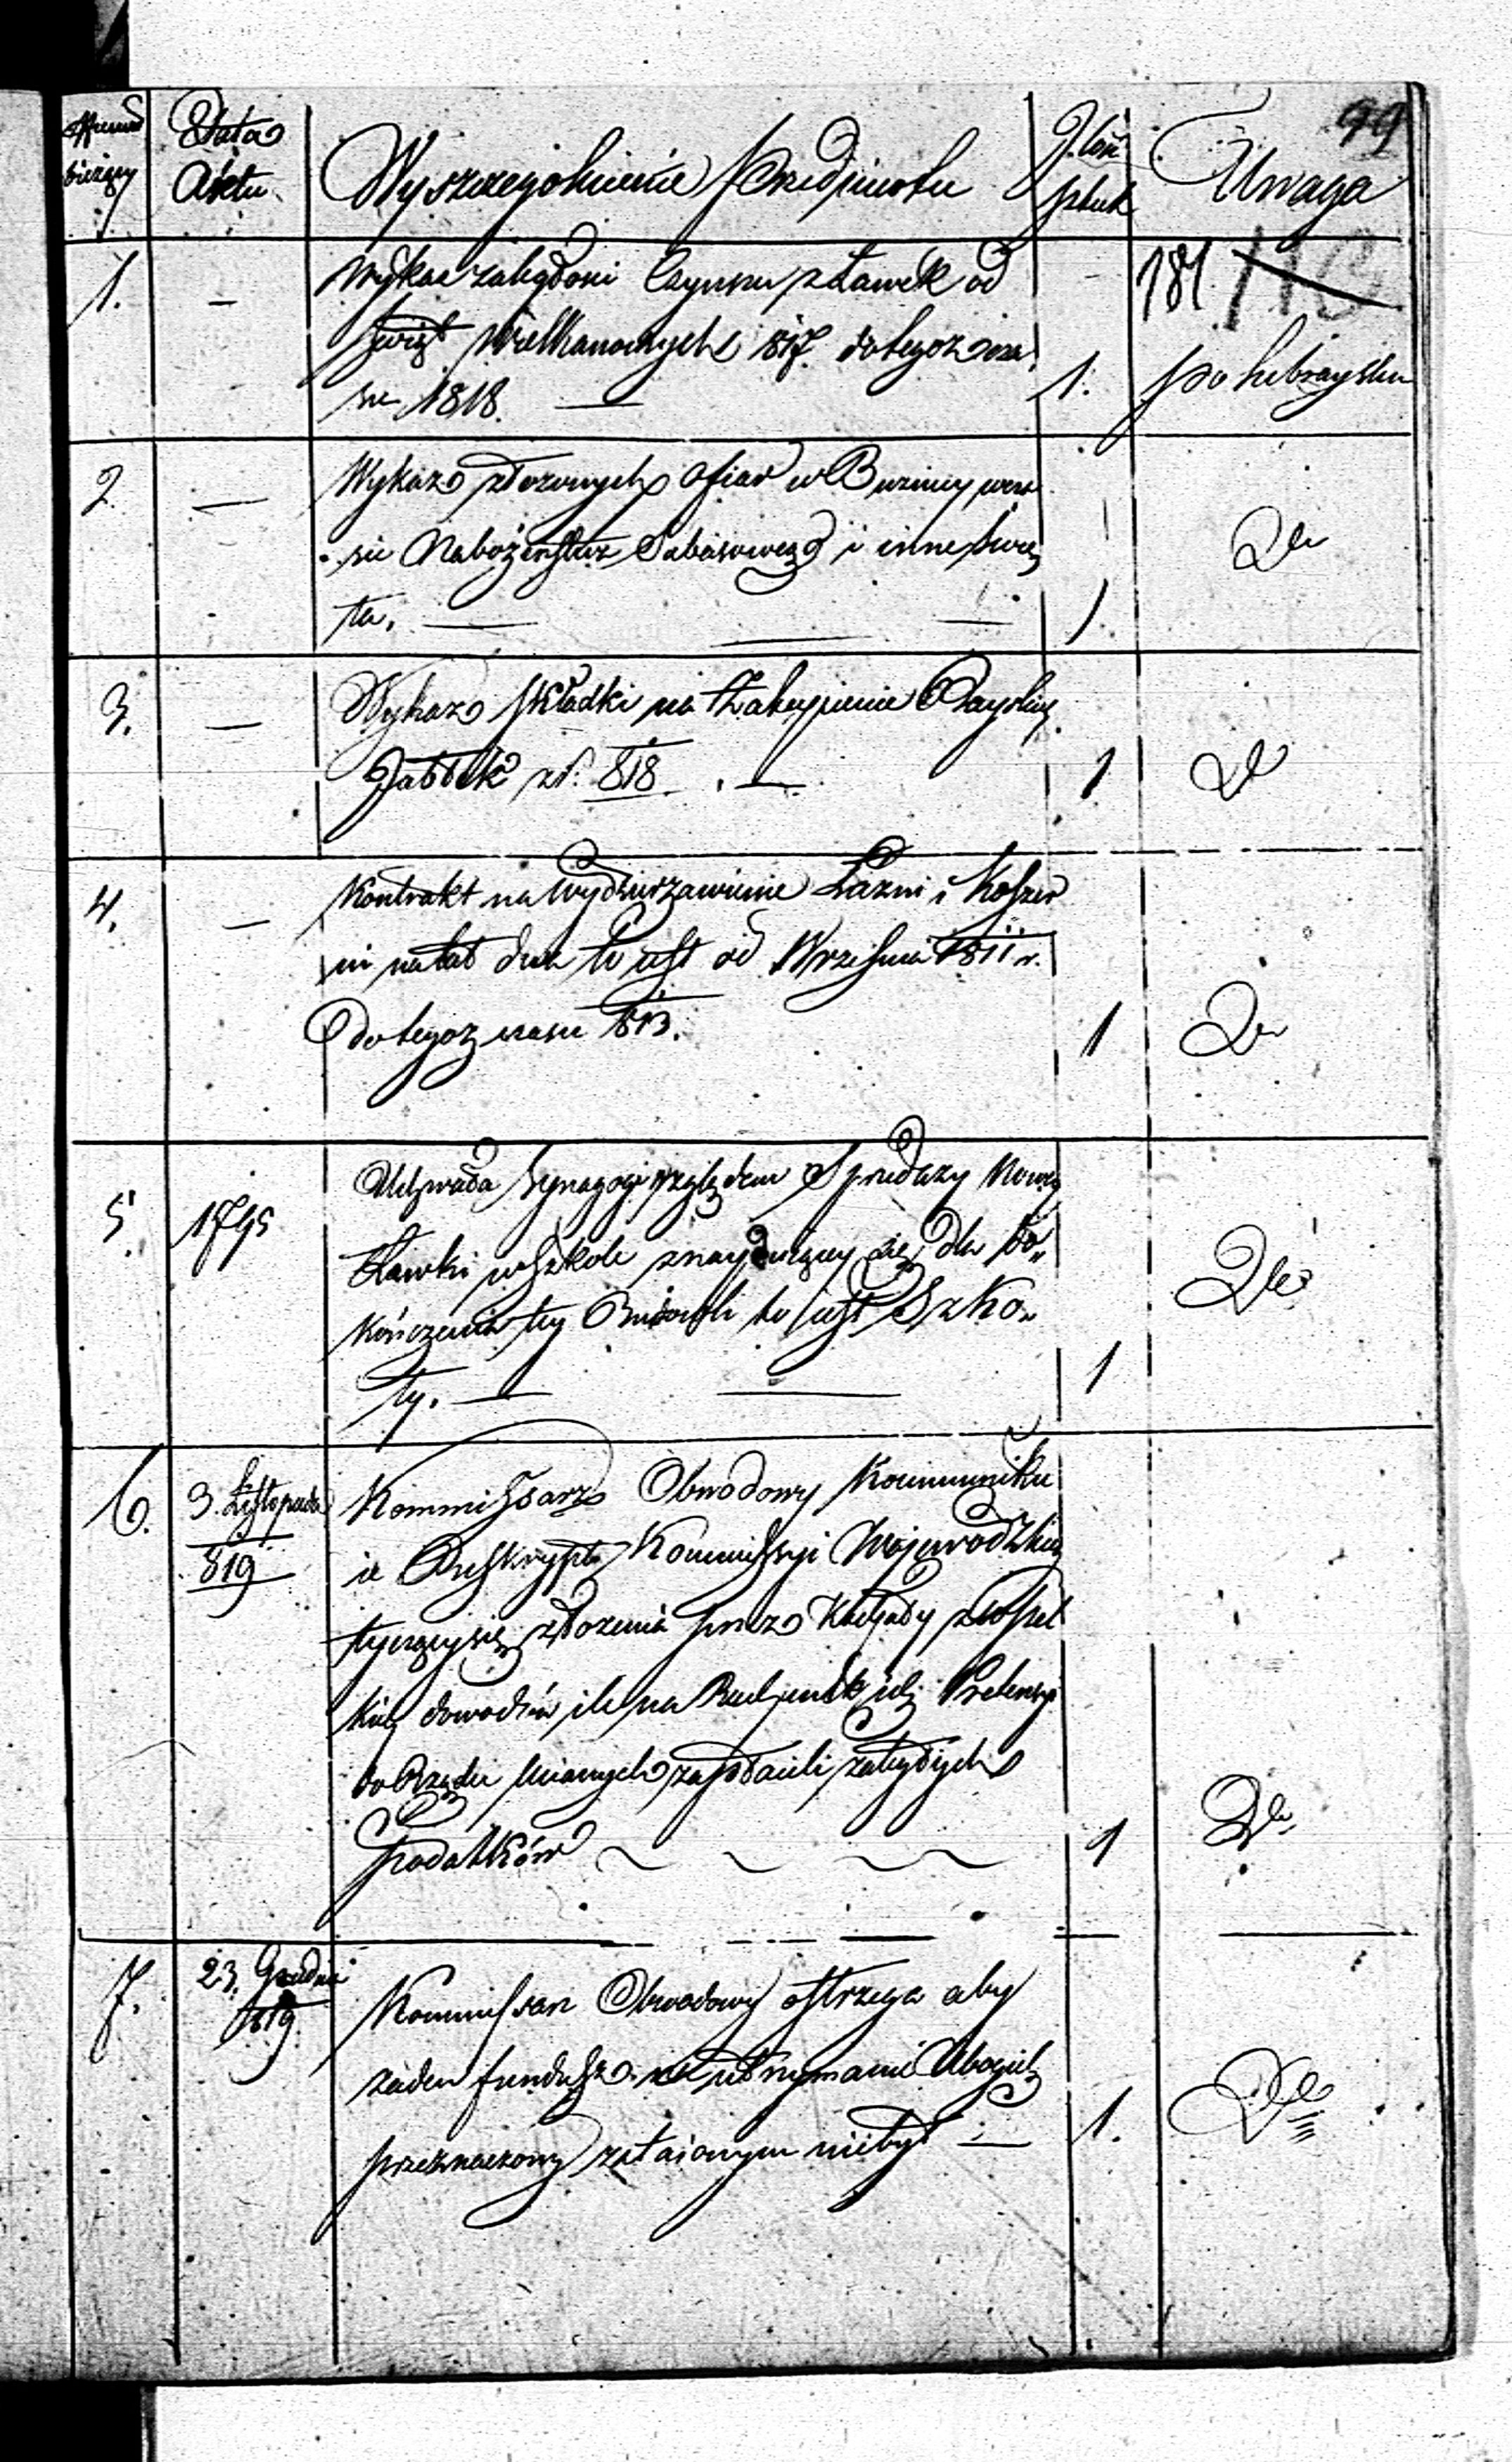 99
Numer bieżący
Data Aktu
Wyszczegolnienie Przedmiotu
Ilość sztuk
Uwaga
181 113
1.
—
Wykaz zaległości Czynszu z Ławek od
Świąt Wielkanocnych 817. do tegoż cza„
su 1818. —
1.
po hebraysku
2.
—
Wykaz złożonych ofiar w Buźnicy w cza
sie Nabożeństwa Sabasowego i inne Świę
ta. —
1
De
3.
—
Wykaz składki na Zakupienie Rayskich
Jabłek r. 818. —
1
De
4.
—
Kontrakt na Wydzierzawienie Łazni i Koszer
ni na lat dwa to iest od Wrzesnia 1811 r.
do tegoż czasu 1813.
1
De
5.
1795
Uchwała Synagogi względem Sprzedazy Nowey
Ławki w Szkole znayduiącey się, dla do„
kończenia tey Budowli to iest Szko„
ły. —
1
De
6.
3. Listopada
819
Kommissarz Obwodowy Kommuniku
ie Reskrypt Kommissyi Woiewodzkiey
tyczący się złożenia przez Kahały
kich dowodów ile na Rachunek ich Pretensyi
do Rządu mianych zapłacili zaległych
Podatków
1
De
7.
23. Grudnia
819
Kommissarz Obwodowy ostrzega aby
żaden fundusz na utrzymanie Ubogich
przeznaczony zataionym niebył —
1.
De